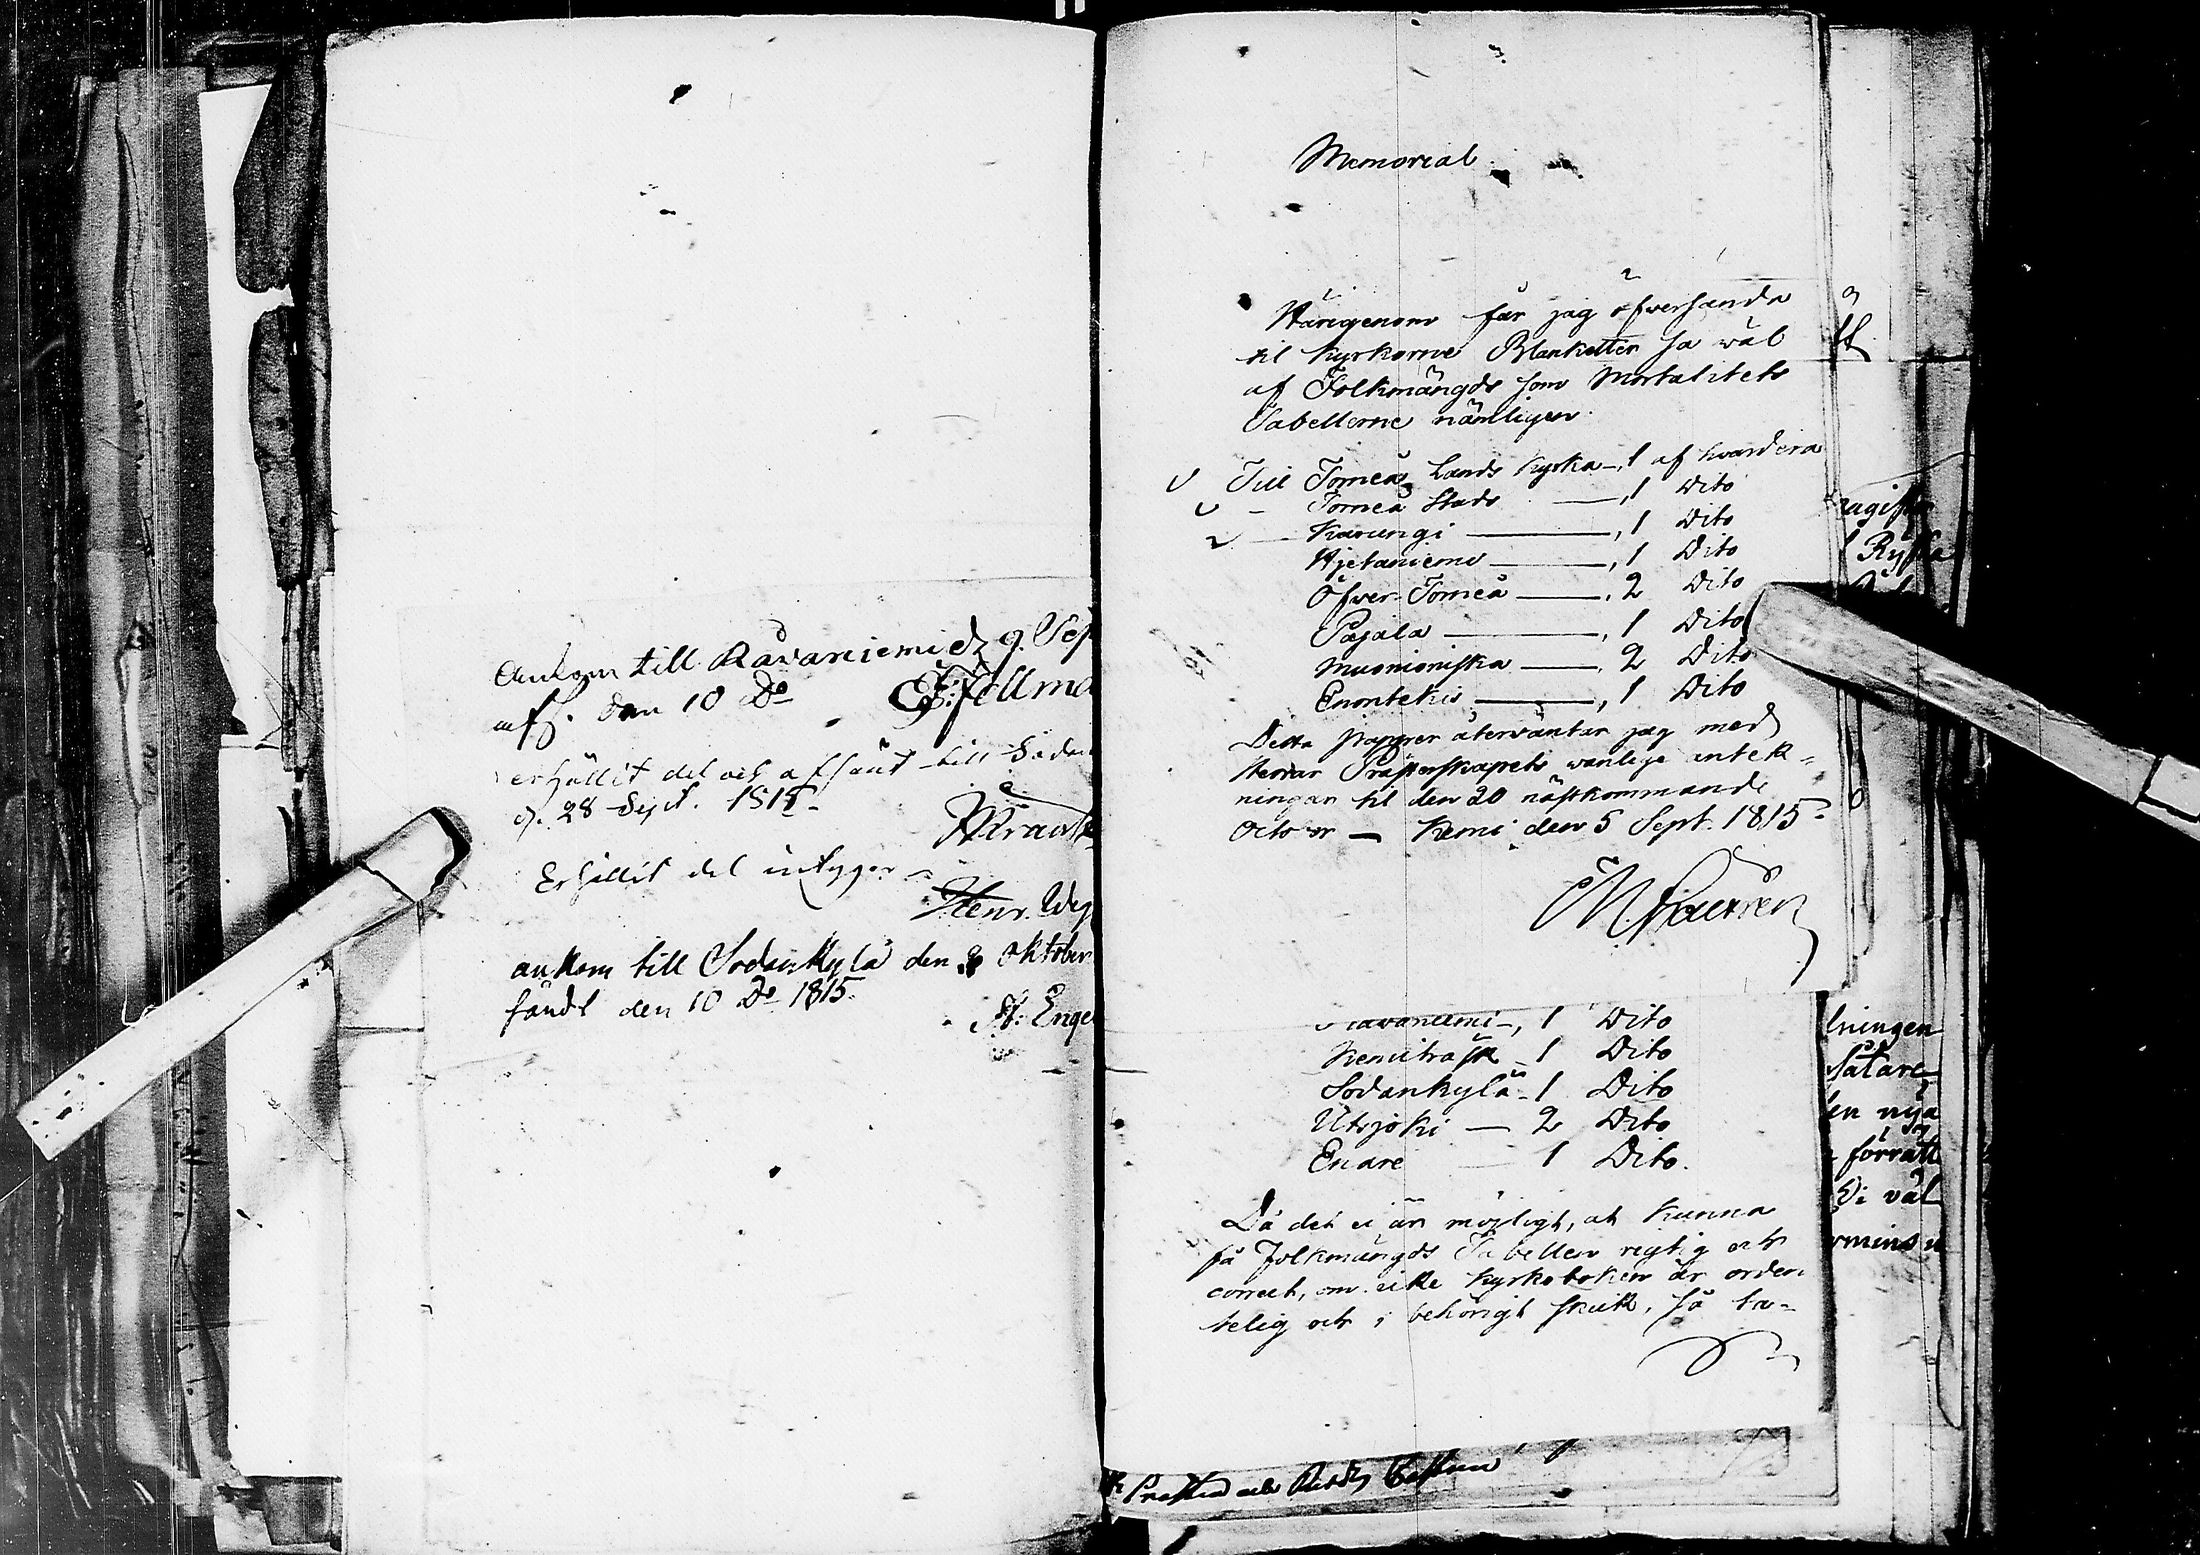 Ankom till Råvaniemi d 9. Sep
afs. den 10 Do F: Fellma
erhållit det och afsänt till Sodan
d. 28 Sept. 1815.
Erhållit det intygar
Henr. Weg
ankom till Sodankylä den 8 Oktober
sändt den 10 Do 1815.
Enge
Memorial
Härigenom får jag öfwersända
til Kyrkorne Blanketter så wäl
af Folkmängds som Mortalitets
Tabellerne nämligen
Till Torneå Lands Kyrka, 1 af hvardera
Torneå Stads, 1 Dito
Karungi, 1 Dito
Hjetaniemi, 1 Dito
Öfwer-Torneå, 2 Dito
Pajala, 1 Dito
Muonioniska, 2 Dito
Enontekis, 1 Dito
Detta papper återväntar jag med
Herrar Prästerskapets wanlige antek-
ningar til den 20 nästkommande
October — Kemi den 5 Sept. 1815
Ravaniemi, 1 Dito
Kemiträsk 1 Dito
Sodankylä 1 Dito
Utsjoki — 2 Dito
Enare 1 Dito.
Då det ei är möjligt, at kunna
få Folkmängds Tabellen rigtig och
correct, om icke Kyrkoboken är orden-
telig och i behörigt skick, så ta-
lningen
en nya
förrätt
Di väl
rmins